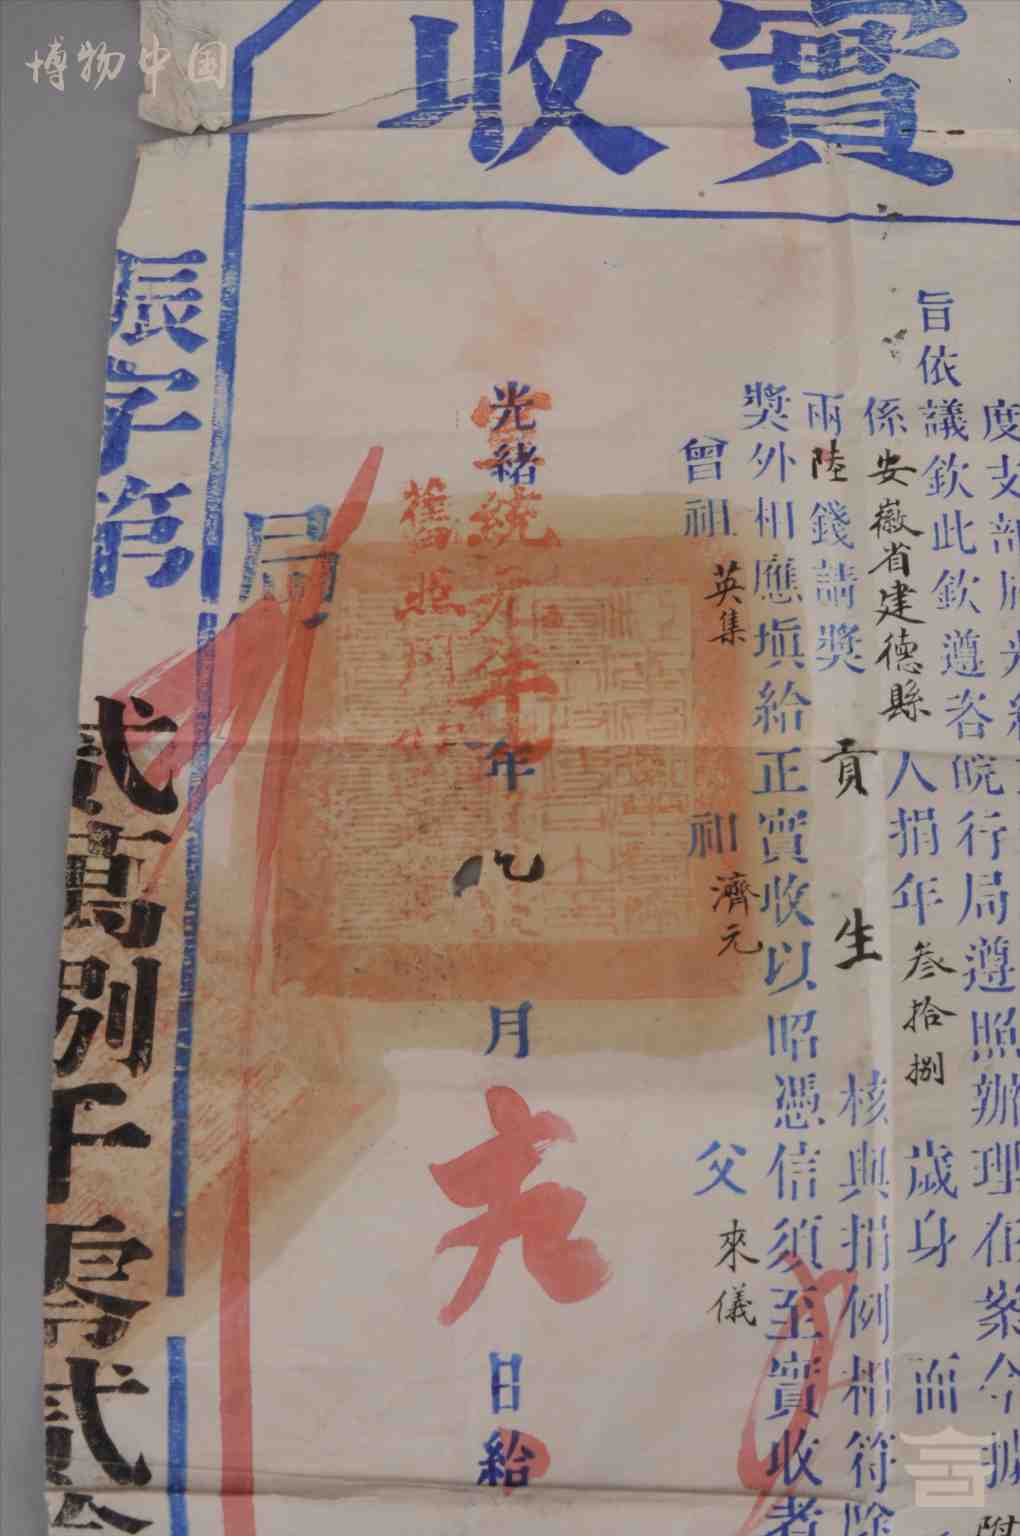 博物中国
實收
度支部
旨依議欽此欽遵咨皖行局遵照辦理在案今據
係安徽省建德縣人捐年叁拾捌歲身 面
兩陸錢請獎貢生核與捐例相符除
獎外相應填給正實收以昭憑信須至實收者
曾祖英集 祖濟元 父來儀
光緒 年 月 日給
宣統元年
舊照
局
振字第 貳萬捌千零貳拾